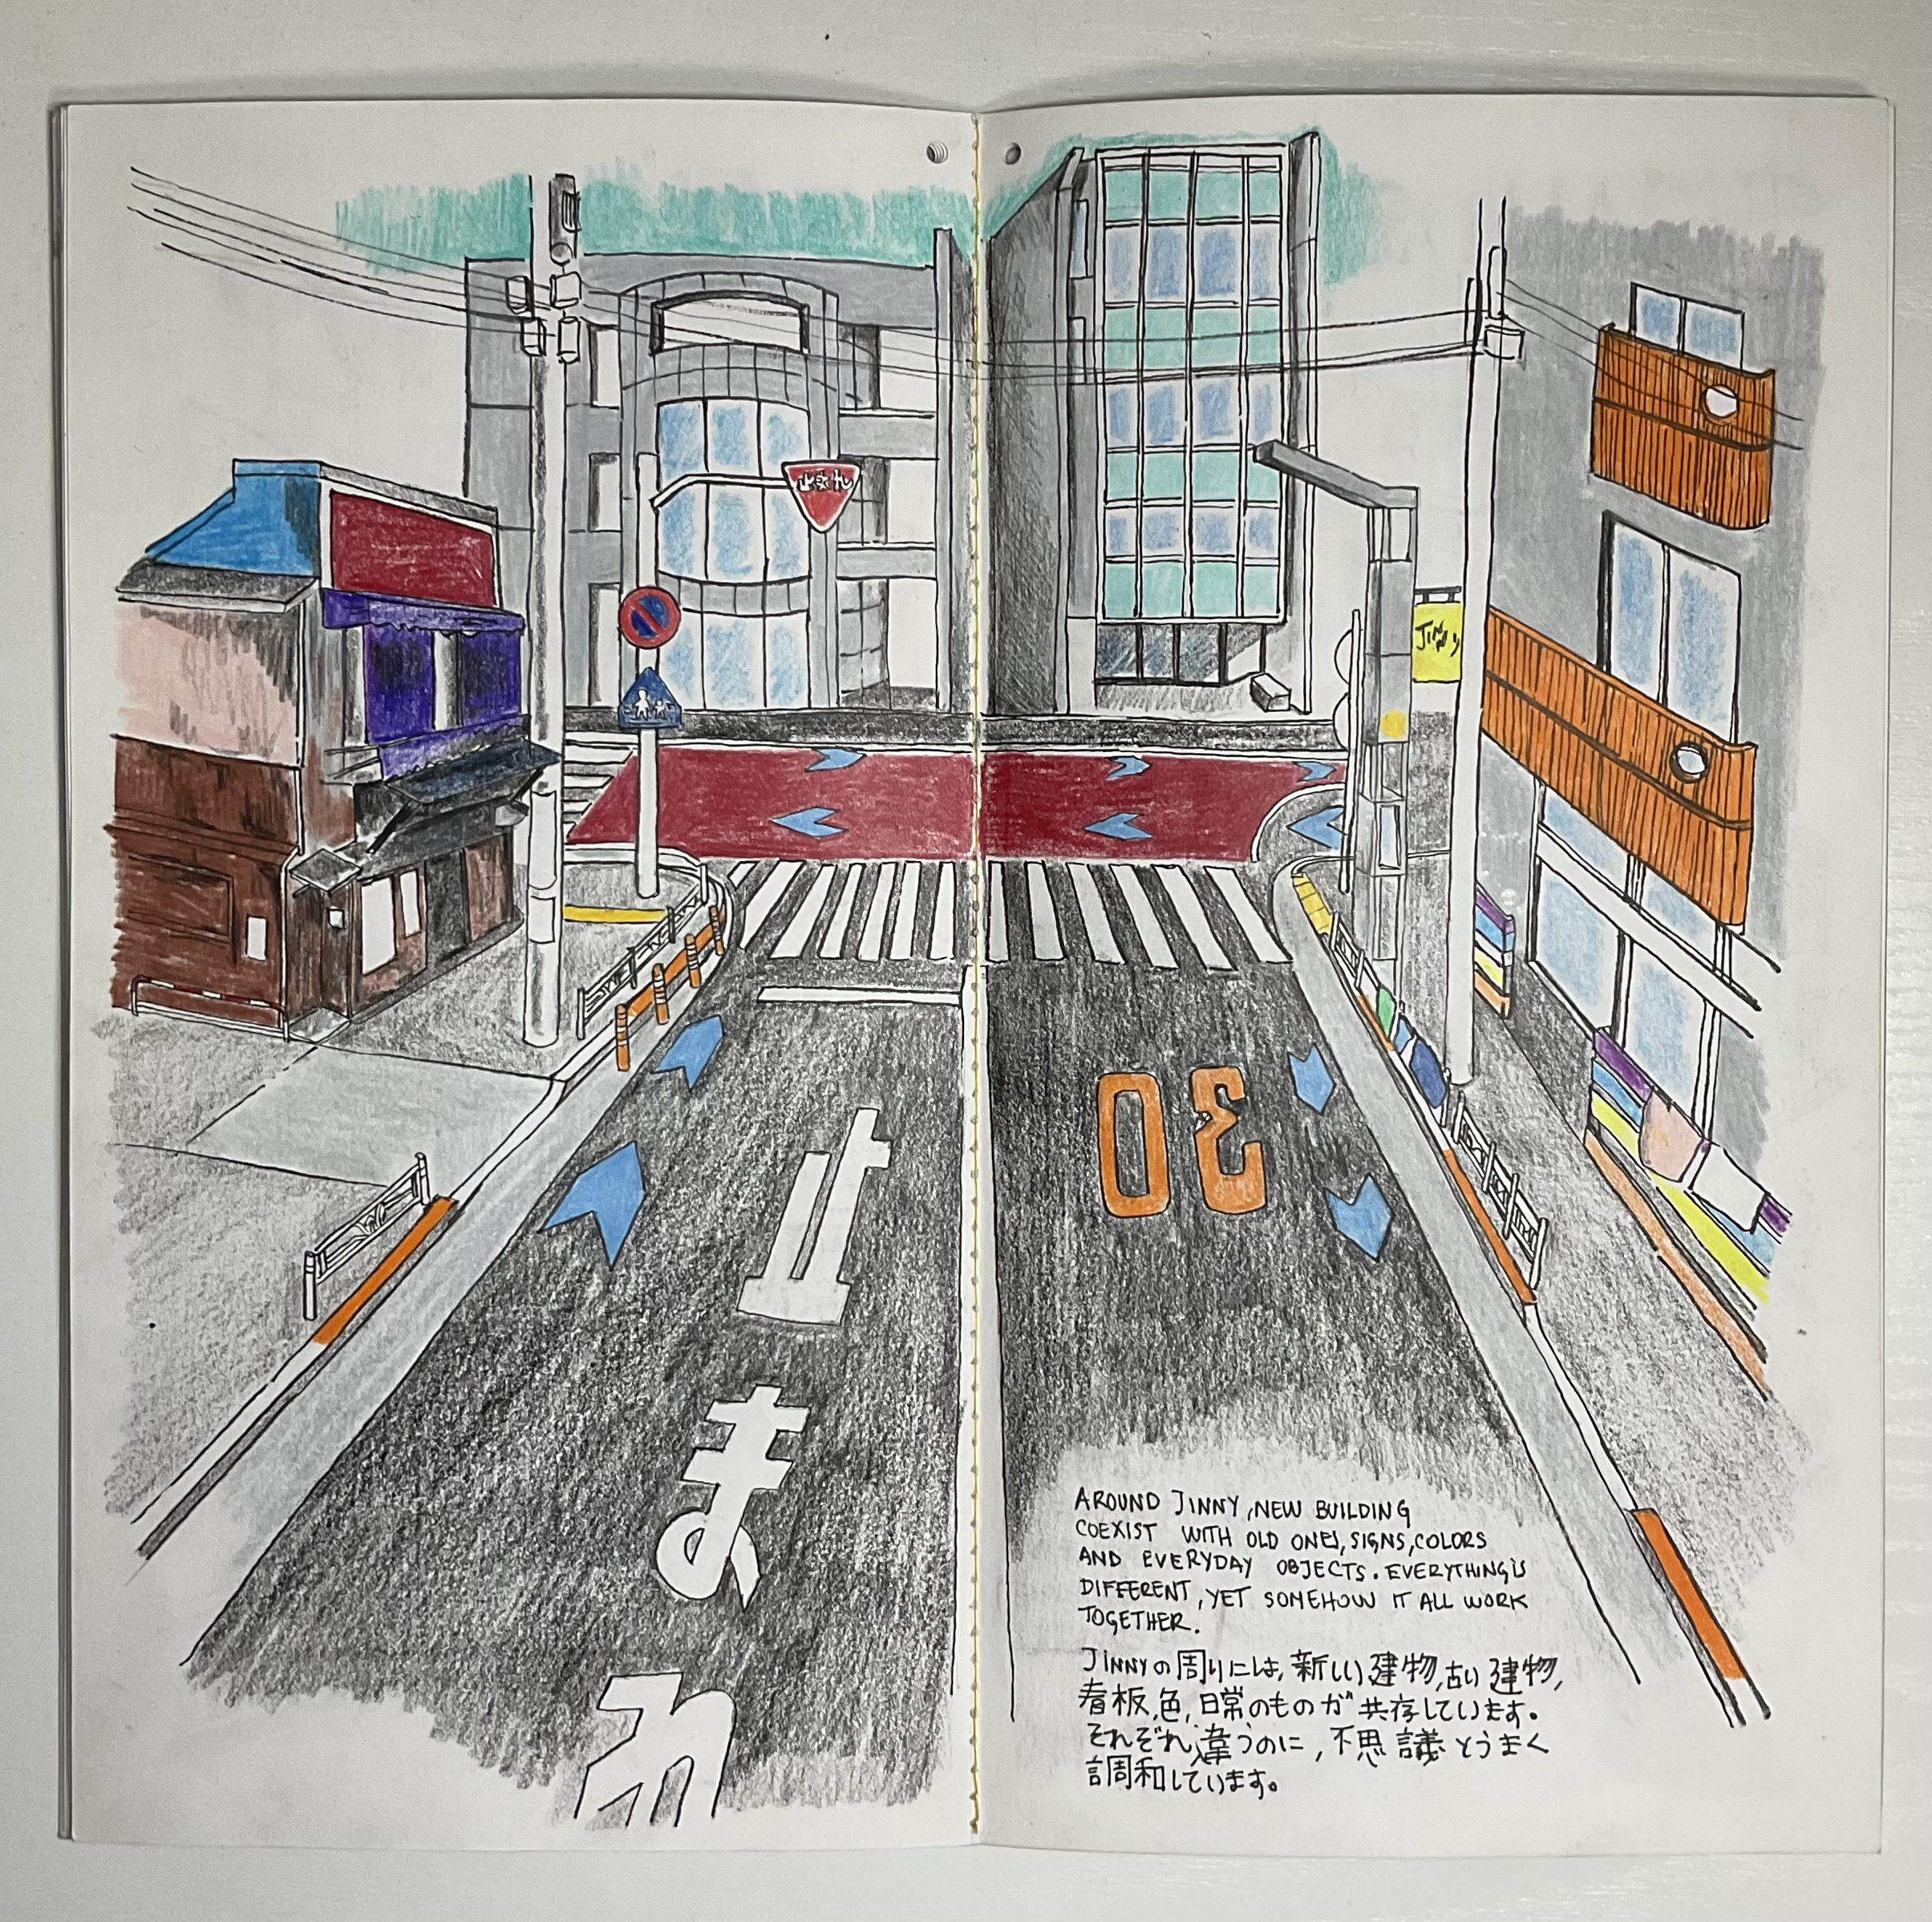 止まれ
JINNY
30
止
ま
れ
AROUND JINNY, NEW BUILDING
COEXIST WITH OLD ONES, SIGNS, COLORS
AND EVERYDAY OBJECTS. EVERYTHING IS
DIFFERENT, YET SOMEHOW IT ALL WORK
TOGETHER.
JINNYの周りには、新しい建物、古い建物、
看板、色、日常のものが共存しています。
それぞれ違うのに、不思議とうまく
調和しています。